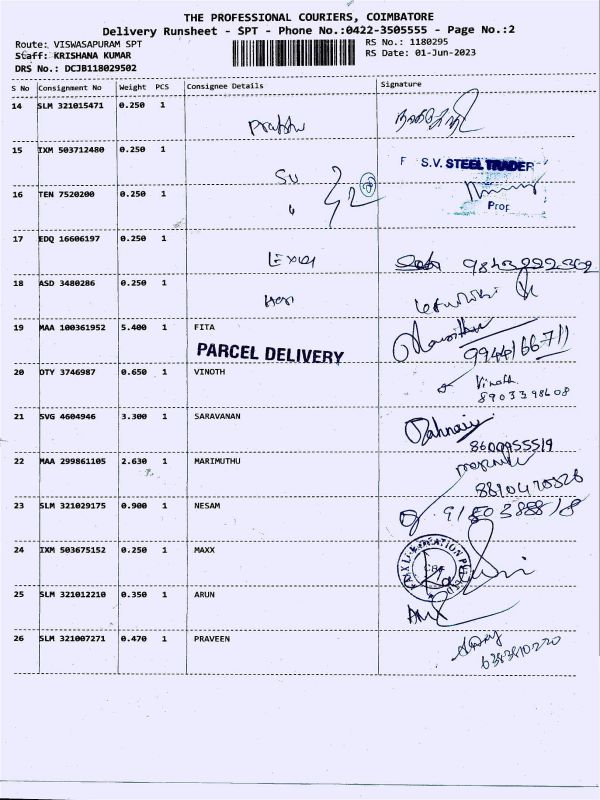 THE PROFESSIONAL COURIERS, COIMBATORE
Delivery Runsheet - SPT - Phone No.:0422-3505555 - Page No.:2
Route: VISWASAPURAM SPT RS No.: 1180295
Staff: KRISHANA KUMAR RS Date: 01-Jun-2023
DRS No.: DCJB118029502
S No Consignment No Weight PCS Consignee Details Signature
14 SLM 321015471 0.250 1
Prabhu
15 IXM 503712480 0.250 1
S.V. STEEL TRADER
SV
16 TEN 7520200 0.250 1
Prop
17 EDQ 16606197 0.250 1
18 ASD 3480286 0.250 1
Hari
19 MAA 100361952 5.400 1 FITA
PARCEL DELIVERY
9944166711
20 OTY 3746987 0.650 1 VINOTH
Vinoth
8903398608
21 SVG 4604946 3.300 1 SARAVANAN
8600955519
22 MAA 299861105 2.630 1 MARIMUTHU
23 SLM 321029175 0.900 1 NESAM
24 IXM 503675152 0.250 1 MAXX
25 SLM 321012210 0.350 1 ARUN
26 SLM 321007271 0.470 1 PRAVEEN